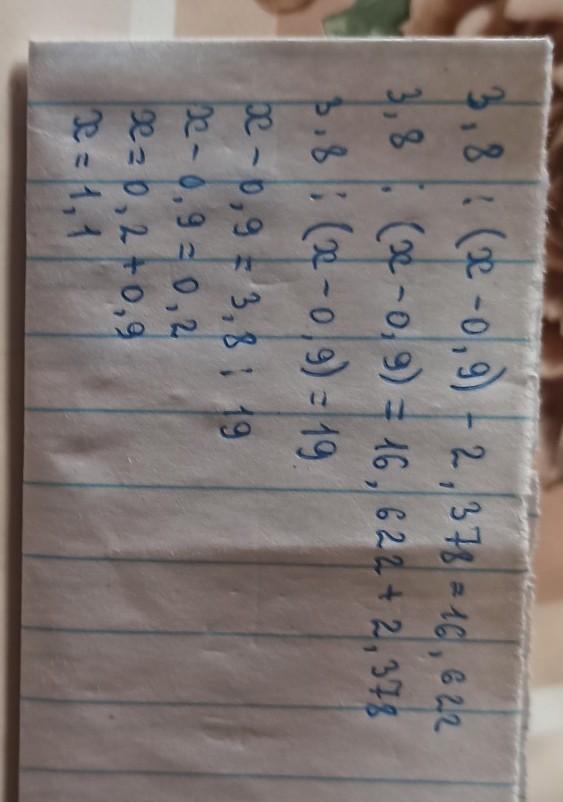 3,8 : (x - 0,9) - 2,378 = 16,622
3,8 : (x - 0,9) = 16,622 + 2,378
3,8 : (x - 0,9) = 19
x - 0,9 = 3,8 : 19
x - 0,9 = 0,2
x = 0,2 + 0,9
x = 1,1